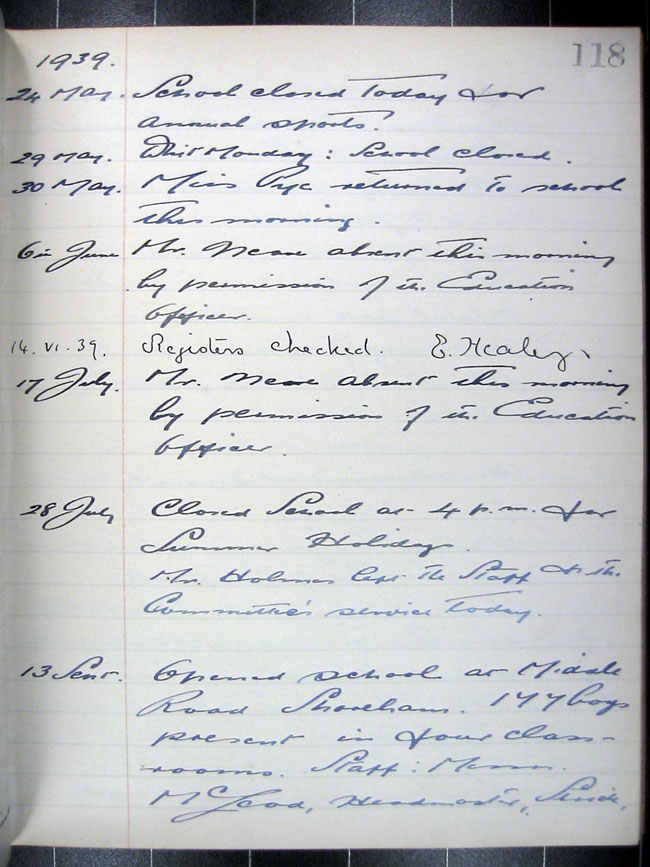 118
1939.
24 May. School closed today for
annual sports.
29 May. Whit Monday: School closed.
30 May. Miss Pye returned to school
this morning.
6th June Mr. Neave absent this morning
by permission of the Education
Officer.
14. VI. 39. Registers checked. E. Healey.
17 July. Mr. Neave absent this morning
by permission of the Education
Officer.
28 July Closed School at 4 p.m. for
Summer Holiday.
Mr. Holmes left the Staff & the
Committee's service today.
13 Sept. Opened school at Middle
Road Shoreham. 177 boys
present in four class-
rooms. Staff: Messrs.
McLeod, Headmaster,